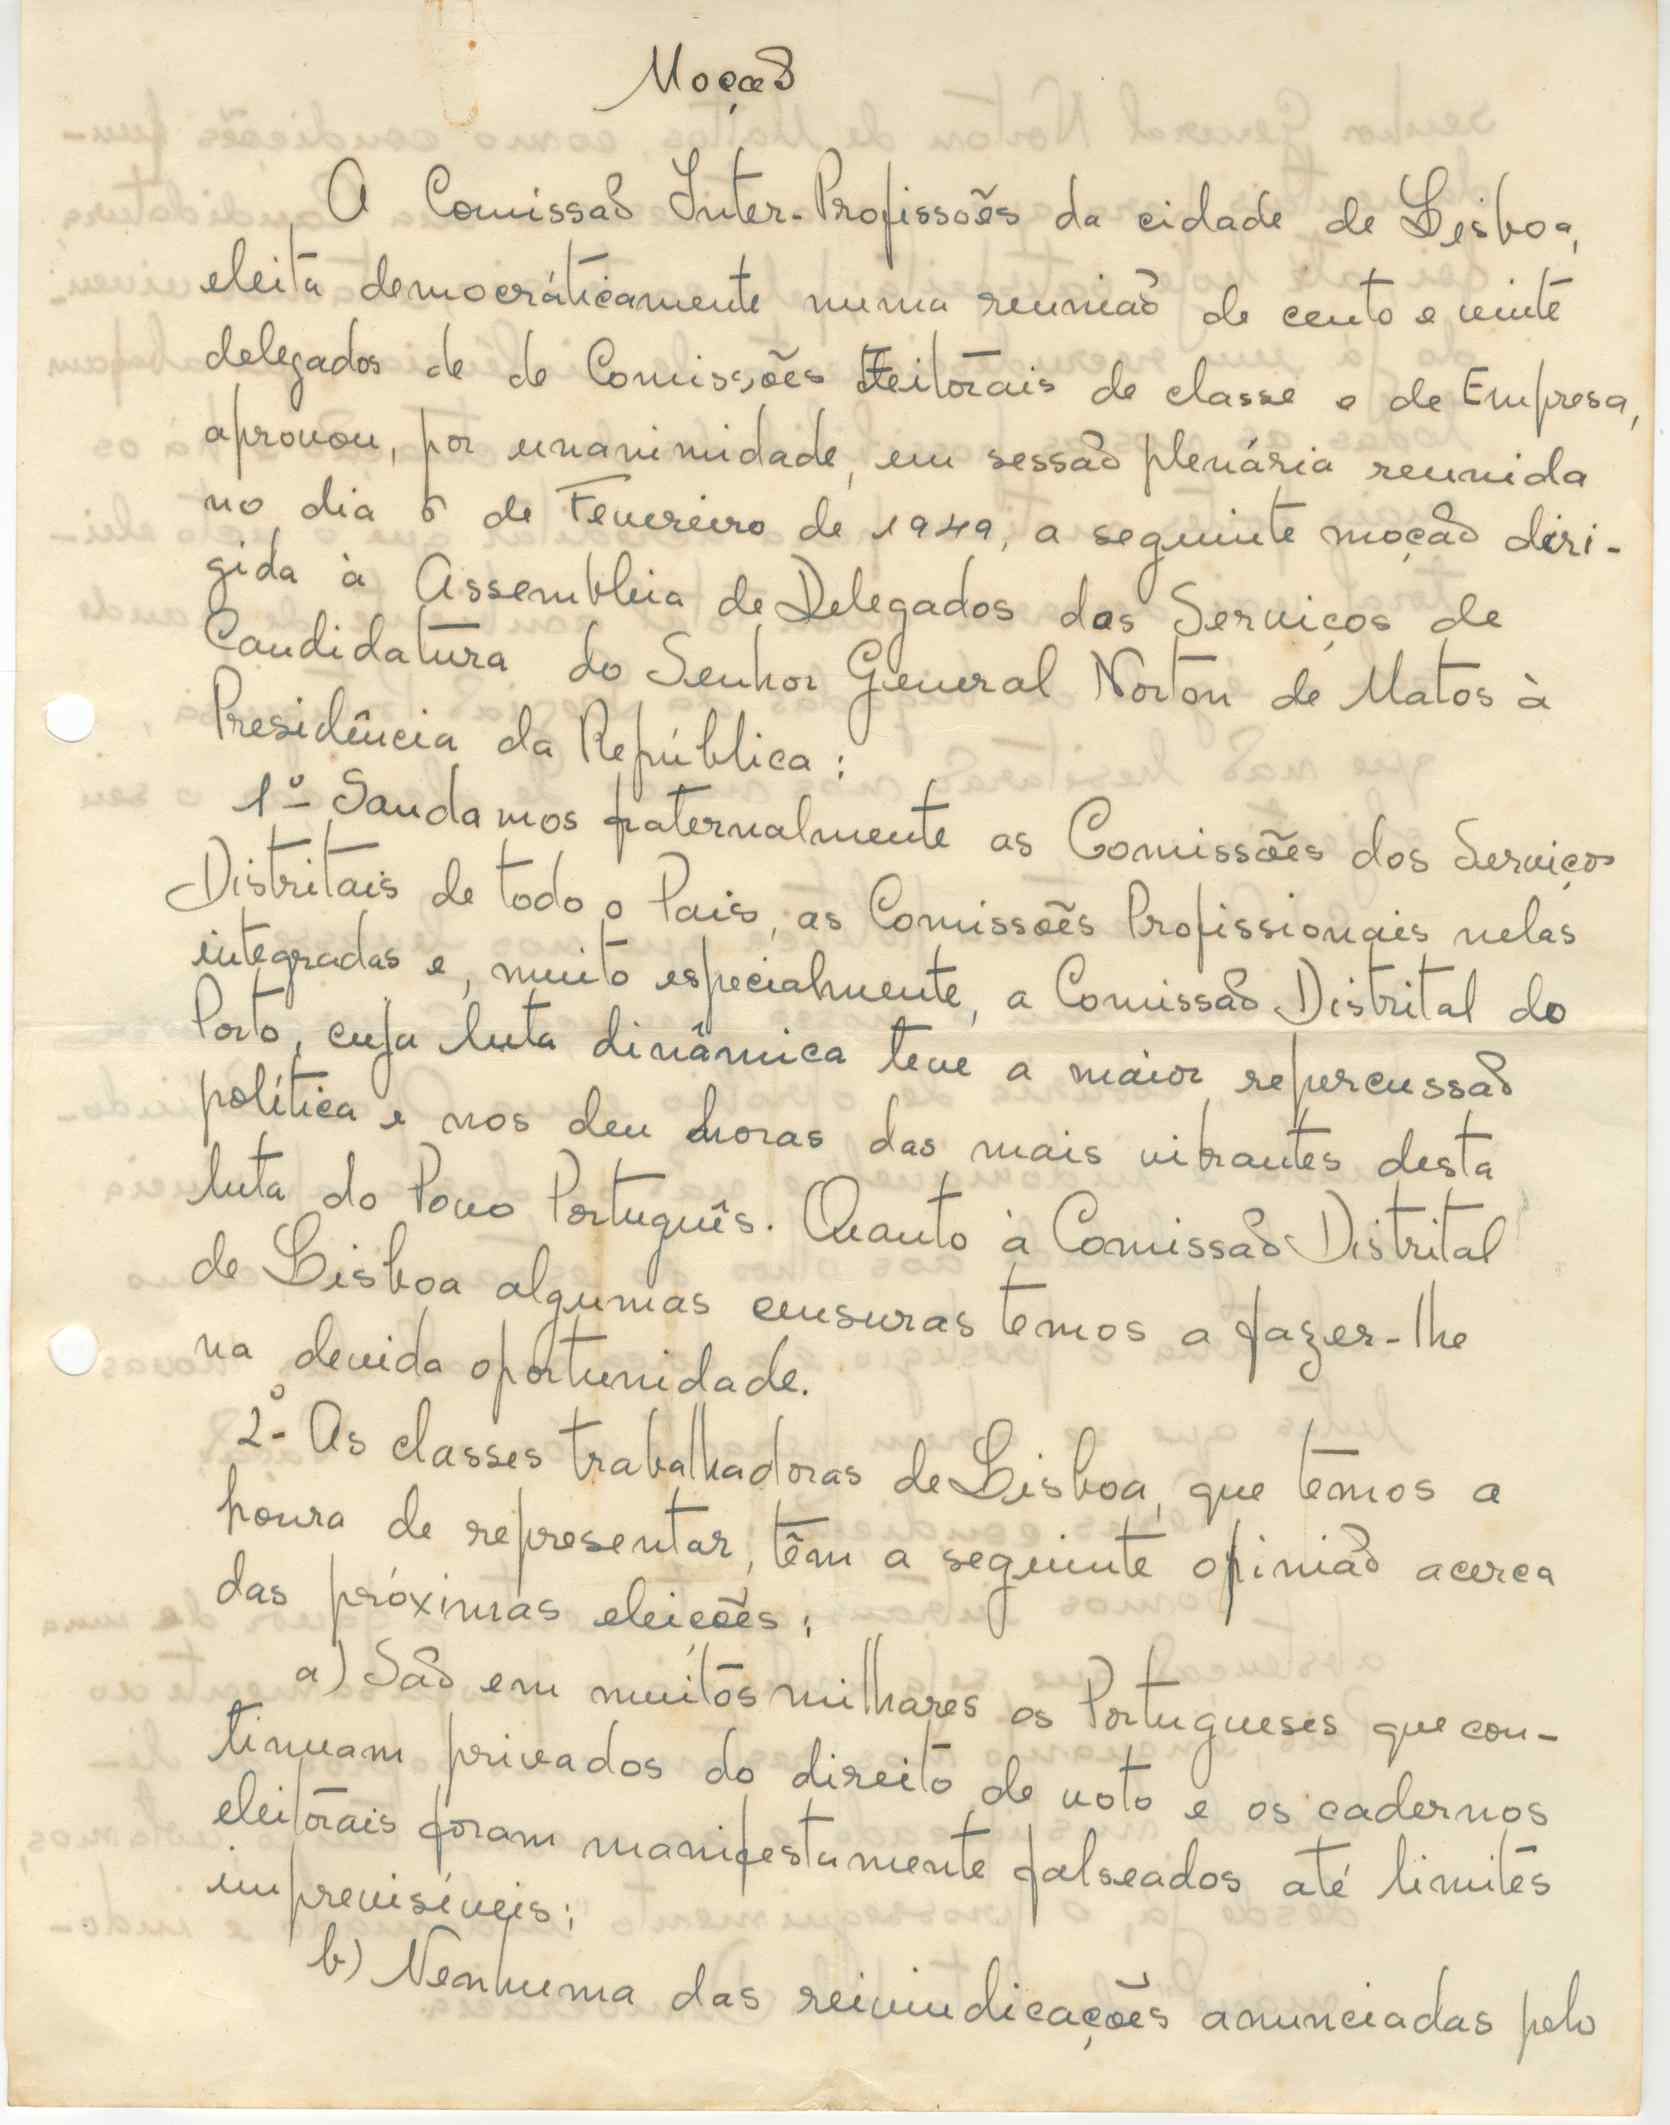 Moção
A Comissão Inter-Profissões da cidade de Lisboa,
eleita democráticamente numa reunião de cento e vinte
delegados de de Comissões Eeitorais de classe e de Empresa,
aprovou, por unanimidade, em sessão plenária reunida
no dia 6 de Fevereiro de 1949, a seguinte moção diri-
gida à Assembleia de Delegados dos Serviços de
Candidatura do Senhor General Norton de Matos à
Presidência da República:
1º- Saudamos fraternalmente as Comissões dos Serviços
Distritais de todo o País, as Comissões Profissionais nelas
integradas e, muito especialmente, a Comissão Distrital do
Porto, cuja luta dinâmica teve a maior repercussão
política e nos deu horas das mais vibrantes desta
luta do Povo Português. Quanto à Comissão Distrital
de Lisboa algumas censuras temos a fazer-lhe
na devida oportunidade.
2º- As classes trabalhadoras de Lisboa, que temos a
honra de representar, têm a seguinte opinião acerca
das próximas eleições:
a) São em muitos milhares os Portugueses que con-
tinuam privados do direito de voto e os cadernos
eleitorais foram manifestamente falseados até limites
imprevisíveis;
b) Nenhuma das reivindicações anunciadas pelo